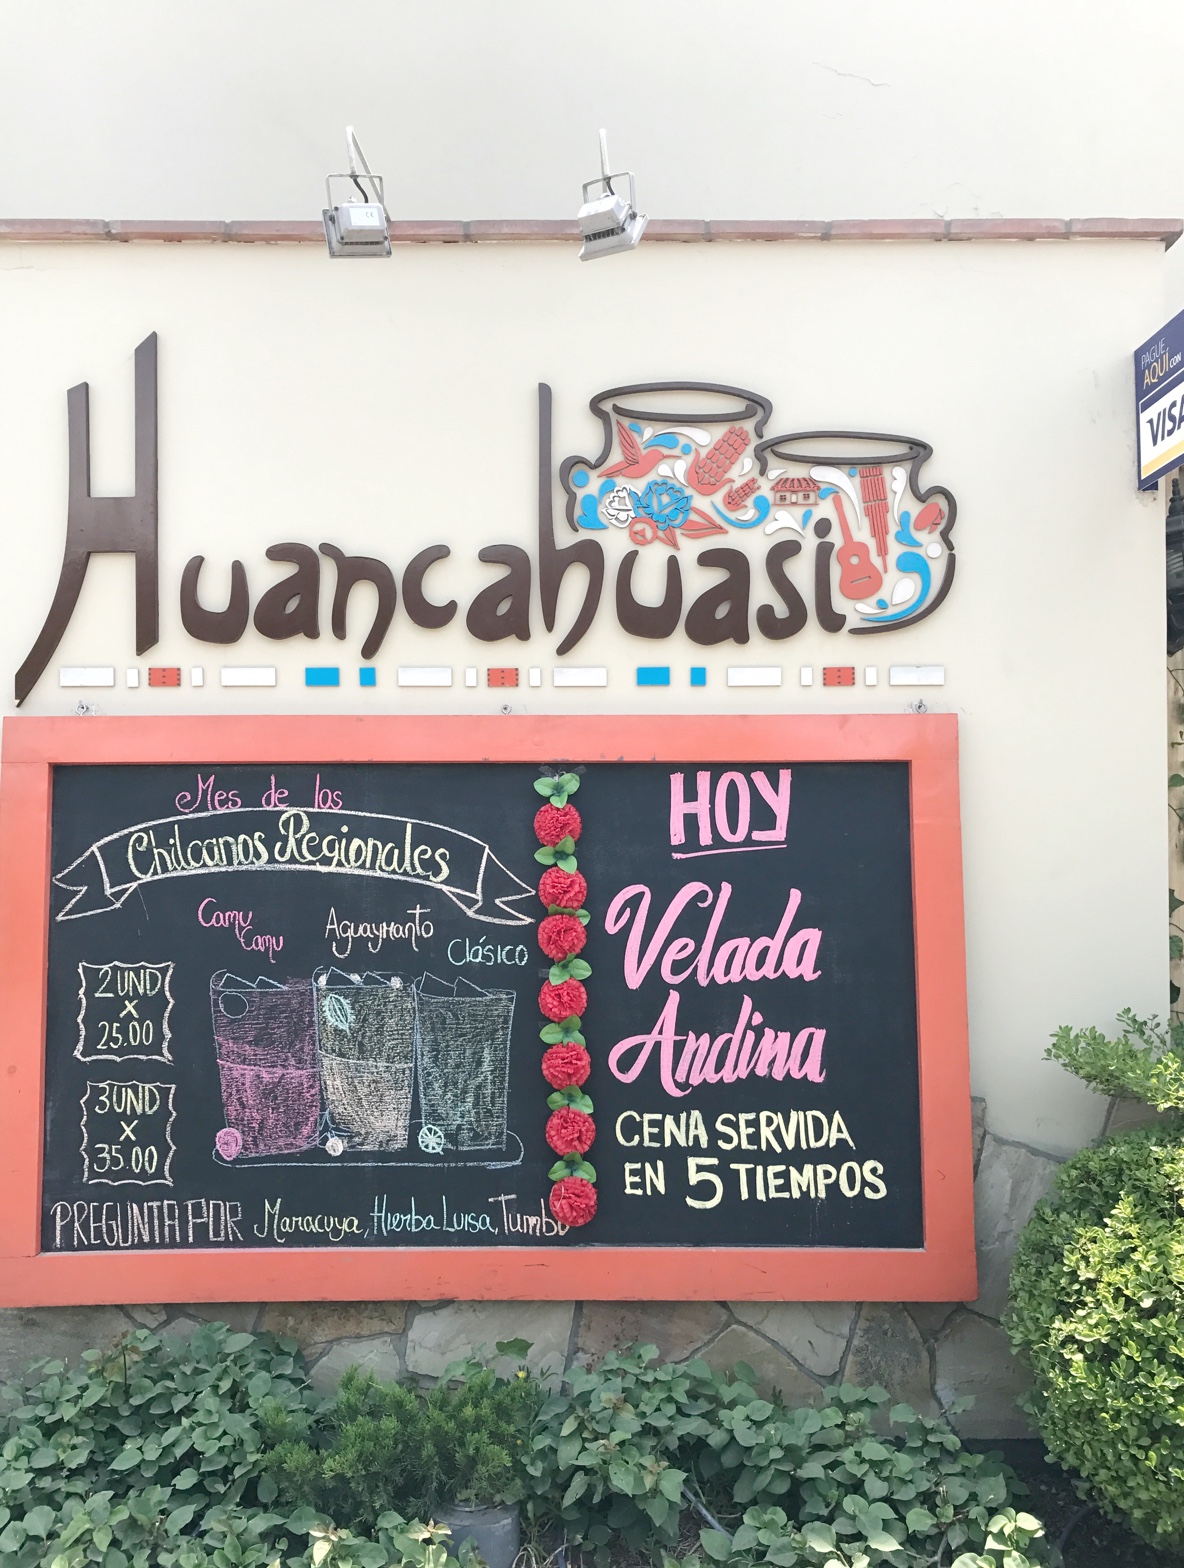 Huancahuasi
PAGUE
AQUÍ CON
VISA
Mes de los
Chilcanos Regionales
Camu
Camu
Aguaymanto
Clásico
2UND
X
25.00
3UND
X
35.00
PREGUNTA POR Maracuya, Hierba Luisa, Tumbo
HOY
Velada
Andina
CENA SERVIDA
EN 5 TIEMPOS